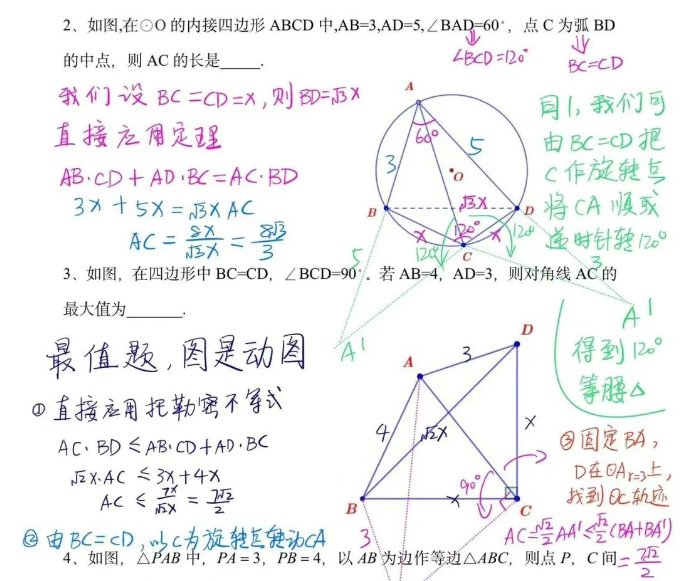 2、如图,在⊙O 的内接四边形 ABCD 中,AB=3,AD=5,∠BAD=60°，点 C 为弧 BD
的中点，则 AC 的长是_____.
∠BCD=120°
BC=CD
我们设 BC=CD=x,则BD=√3x
直接应用定理
AB·CD+AD·BC=AC·BD
3x+5x=√3x AC
AC=8x/√3x=8√3/3
A
60°
3
5
O
B
√3x
D
x
120°
x
120°
120°
C
5
3
A'
A'
同1,我们可
由BC=CD把
C作旋转点
将CA顺或
逆时针转120°
得到120°
等腰△
3、如图，在四边形中 BC=CD，∠BCD=90°．若 AB=4，AD=3，则对角线 AC 的
最大值为_______.
最值题,图是动图
①直接应用托勒密不等式
AC·BD≤AB·CD+AD·BC
√2x·AC≤3x+4x
AC≤7x/√2x=7√2/2
②由BC=CD,以C为旋转点转动CA
D
3
A
4
√2x
x
90°
B
x
C
3
③固定BA,
D在⊙A r=3上,
找到⊙C轨迹
AC=√2/2AA'≤√2/2(BA+BA')
=7√2/2
4、如图，△PAB 中，PA=3，PB=4，以 AB 为边作等边△ABC，则点 P，C 间